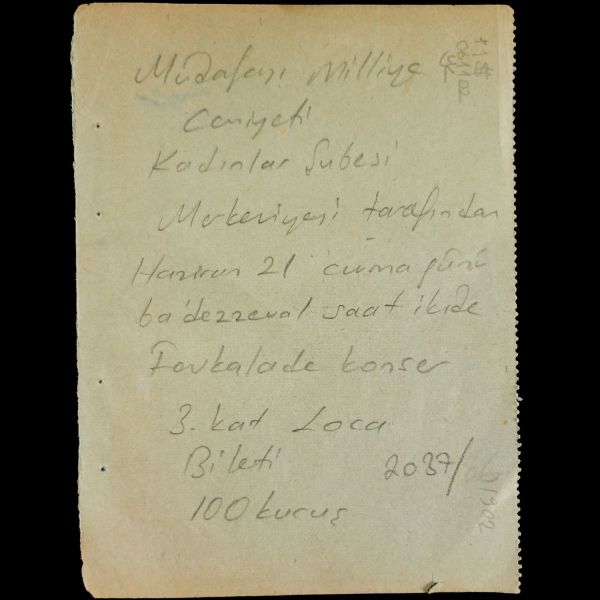 Müdafaai Milliye
Cemiyeti
Kadınlar Şubesi
Merkeziyesi tarafından
Haziran 21 cuma günü
ba'dezzeval saat ikide
Fevkalade konser
3. kat Loca
Bileti
2037/
100 kuruş